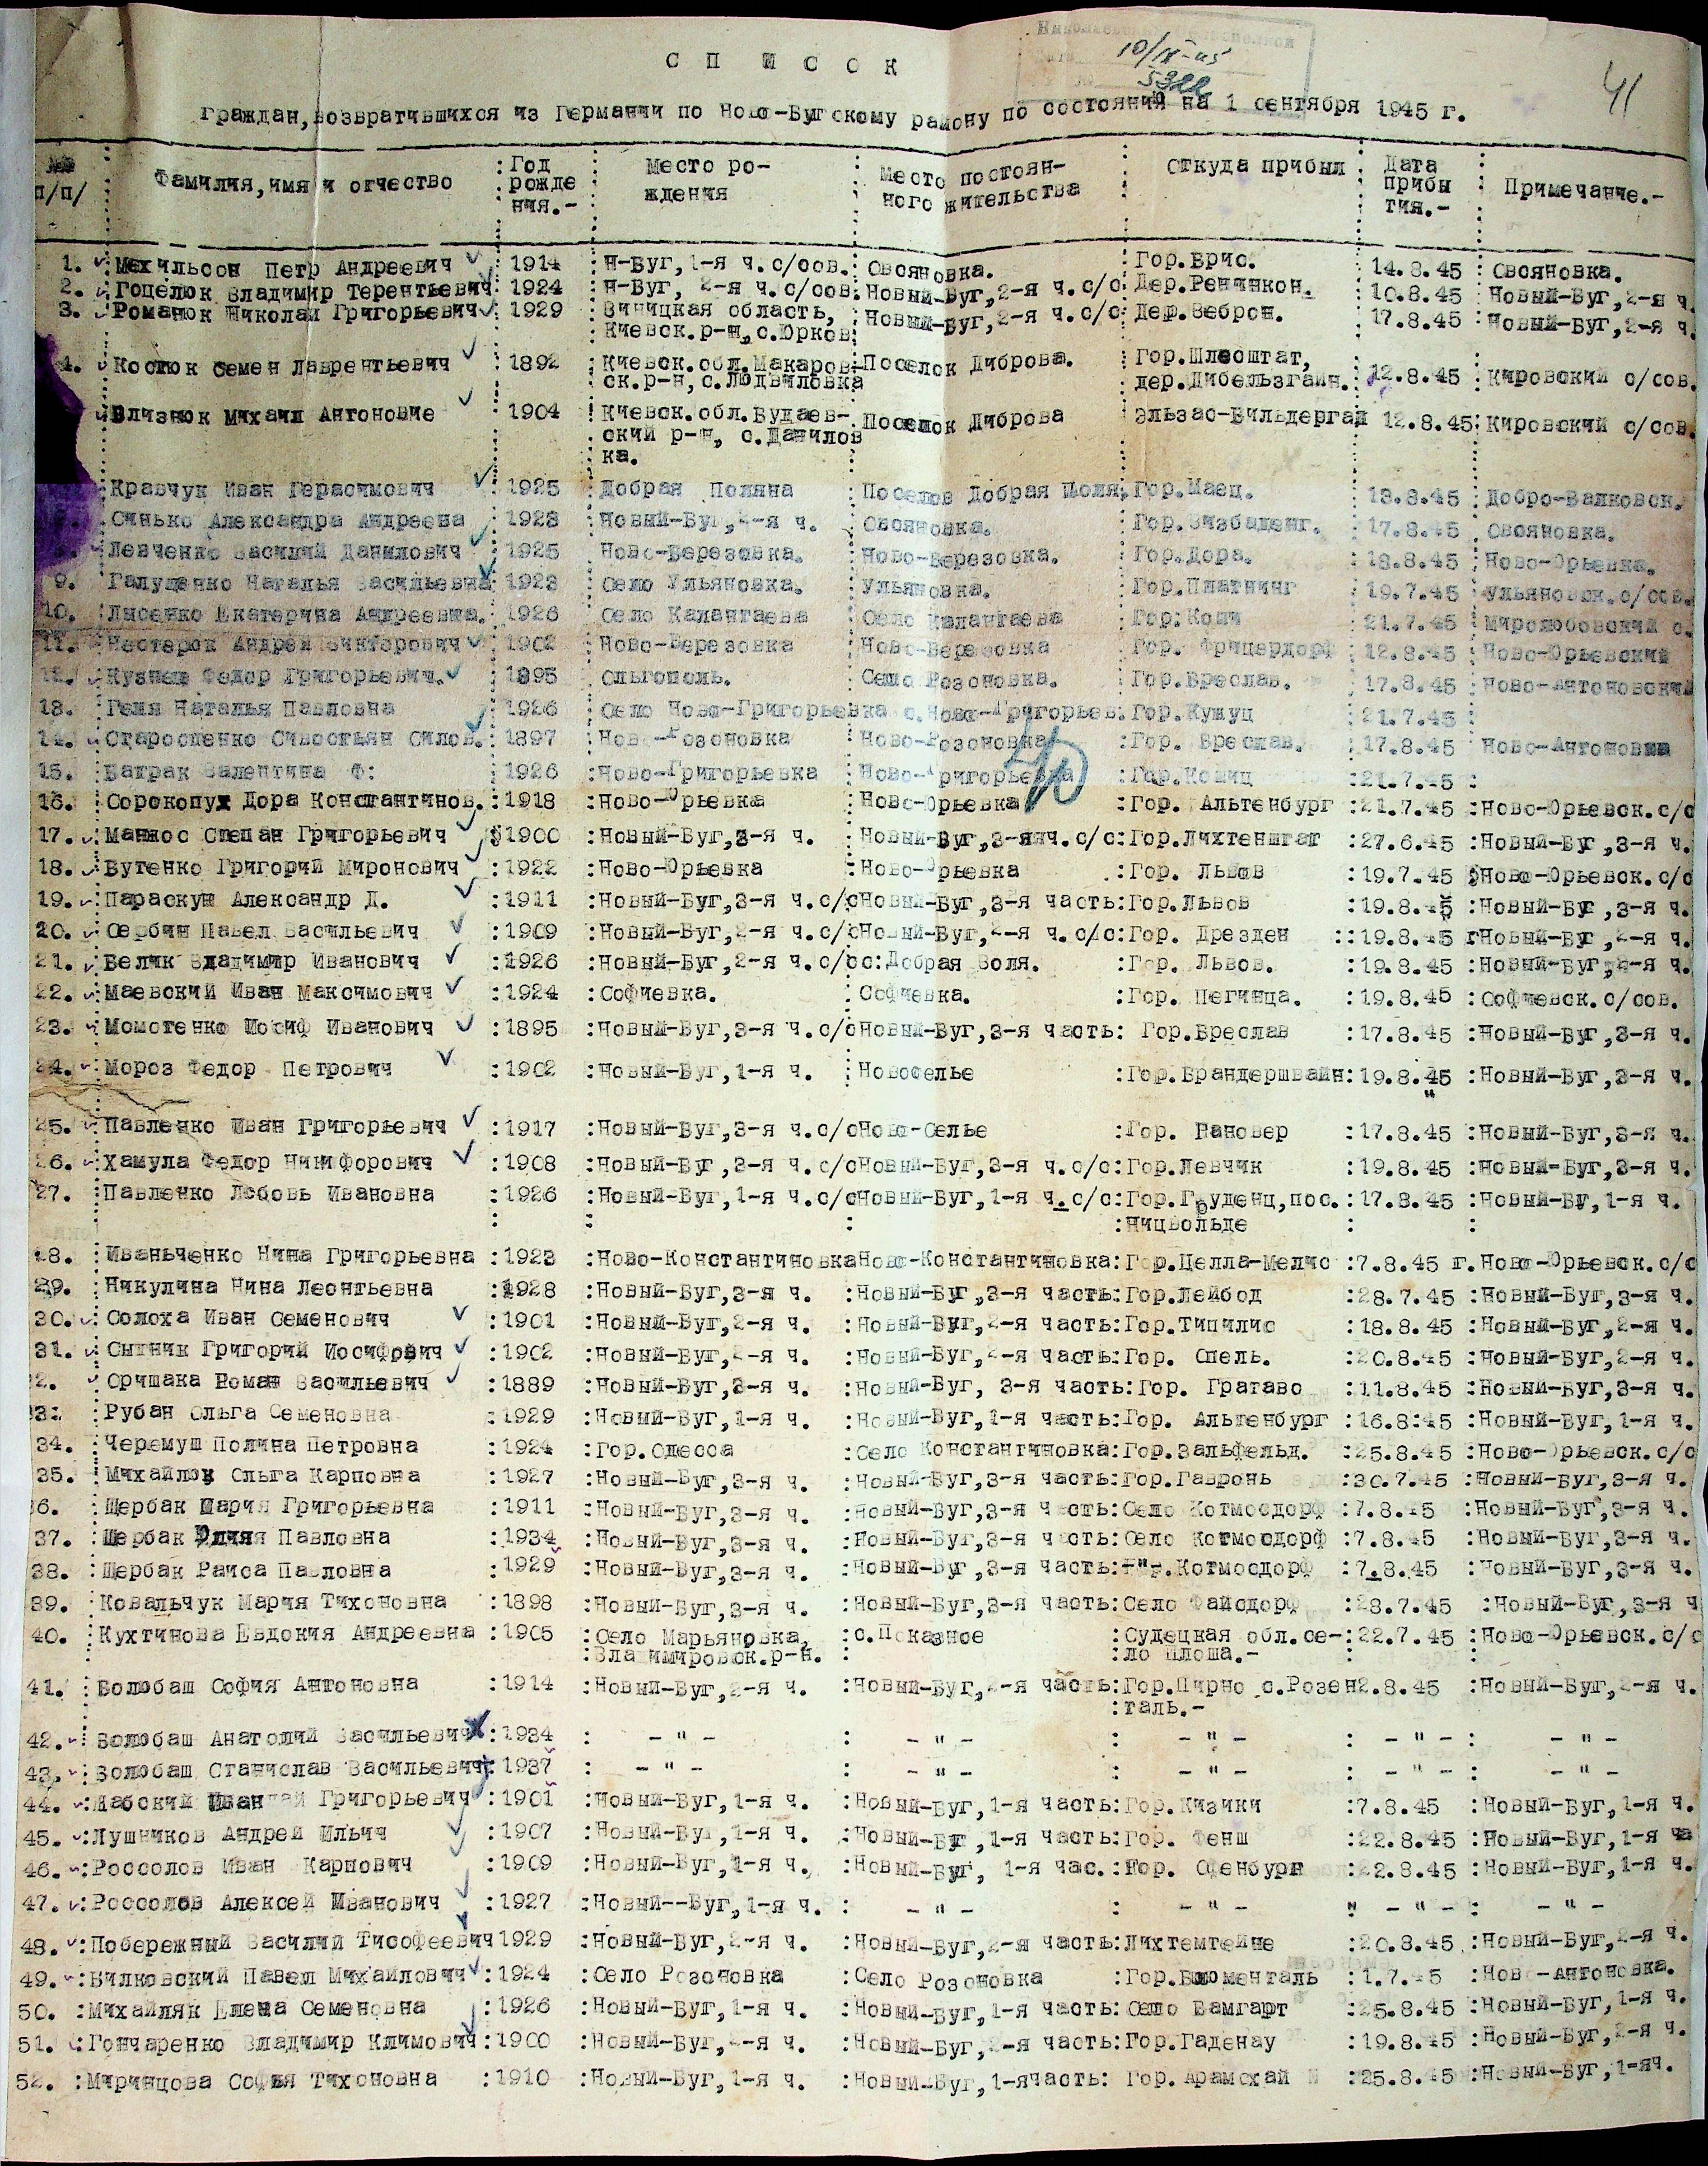 10/IX-45
532
41
С П И С О К
граждан,возвратившихся из Германии по Ново-Бугскому району по состоянию на 1 сентября 1945 г.
№№ п/п/ Фамилия,имя и отчество :Год рожде ния.- Место ро- ждения Место постоян- ного жительства Откуда прибыл Дата прибы тия.- Примечание.-
1. Мехильсон Петр Андреевич :1914 Н-Буг,1-я ч.с/сов. Овсяновка. Гор.Брис. 14.8.45 Овсяновка.
2. Гоцелюк Владимир Терентьевич 1924 Н-Буг, 2-я ч.с/сов. Новый-Буг,2-я ч.с/с Дер.Ренинкон. 10.8.45 Новый-Буг,2-я ч.
3. Романюк Николай Григорьевич 1929 Виницкая область, Новый-Буг,2-я ч.с/с Дер.Веброн. 17.8.45 Новый-Буг,2-я ч.
Киевск.р-н,с.Юрков
4. Костюк Семен Лаврентьевич 1892 Киевск.обл.Макаров- Поселок Диброва. Гор.Шлесштат, 12.8.45 Кировский с/сов.
ск.р-н,с.Людвиловка дер.Дибельзгайн.
Близнюк Михаил Антоновие 1904 Киевск.обл.Будаев- Поселок Диброва Эльзас-Вильдергай 12.8.45 Кировский с/сов.
ский р-н, с.Данилов
ка.
Кравчук Иван Герасимович 1925 Добрая Поляна Поселок Добрая Гор.Маец. 18.8.45 Добро-Валковск.
Синько Александра Андреева 1923 Новый-Буг,2-я ч. Овсяновка. Гор.Визбаденг. 17.8.45 Овсяновка.
Левченко Василий Данилович 1925 Ново-Березовка. Ново-Березовка. Гор.Дора. 18.8.45 Ново-Юрьевка.
9. Галущенко Наталья Васильевна 1923 Село Ульяновка. Ульяновка. Гор.Плятнинг 19.7.45 Ульяновск.с/сов.
10. Лысенко Екатерина Андреевна. 1926 Село Калантаева Село Калантаева Гор.Кощи 21.7.45 Миролюбовский с.
11. Нестерок Андрей Викторович 1902 Ново-Березовка Ново-Березовка Гор. Фрицердорф 12.8.45 Ново-Юрьевский
12. Кузнец Федор Григорьевич. 1895 Ольгополь. Село Розоновка. Гор.Бреслав. 17.8.45 Ново-Антоновский
13. Геля Наталья Павловна 1926 Село Ново-Григорьевка с.Ново-Григорьев. Гор.Кушуц 21.7.45
14. Старостенко Сивостьян Силов. 1897 Ново-Розоновка Ново-Розоновка Гор. Бреслав. 17.8.45 Ново-Антоновка
15. Батрак Валентина Ф: 1926 :Ново-Григорьевка Ново-Григорьевка :Гор.Кошиц :21.7.45 :
16. Сорокопуд Дора Константинов. :1918 :Ново-Юрьевка Ново-Юрьевка :Гор. Альтенбург :21.7.45 :Ново-Юрьевск.с/с
17. Манжос Степан Григорьевич 1900 :Новый-Буг,3-я ч. Новый-Буг,3-яяч.с/с:Гор.Лихтенштат :27.6.45 :Новый-Буг,3-я ч.
18. Бутенко Григорий Миронович :1922 :Ново-Юрьевка :Ново-Юрьевка .:Гор. Львов :19.7.45 Ново-Юрьевск.с/с
19. Параскун Александр Д. :1911 :Новый-Буг,3-я ч.с/сНовый-Буг,3-я часть:Гор.Львов :19.8.45 :Новый-Буг,3-я ч.
20. Сербин Павел Васильевич :1909 :Новый-Буг,2-я ч.с/сНовый-Буг,2-я ч.с/с:Гор. Дрезден ::19.8.45 гНовый-Буг,2-я ч.
21. Велик Владимир Иванович :1926 :Новый-Буг,2-я ч.с/сс:Добрая Воля. :Гор. Львов. :19.8.45 :Новый-Буг,2-я ч.
22. Маевский Иван Максимович :1924 :Софиевка. Софиевка. :Гор. Легинца. :19.8.45 :Софиевск.с/сов.
23. Момотенко Иосиф Иванович :1895 :Новый-Буг,3-я ч.с/сНовый-Буг,3-я часть: Гор.Бреслав :17.8.45 :Новый-Буг,3-я ч.
24. Мороз Федор Петрович :1902 :Новый-Буг,1-я ч. :Новоселье :Гор.Брандершвайн:19.8.45 :Новый-Буг,3-я ч.
25. Павленко Иван Григорьевич :1917 :Новый-Буг,3-я ч.с/сНово-Селье :Гор. Ганновер :17.8.45 :Новый-Буг,3-я ч.
26. Хамула Федор Никифорович :1908 :Новый-Буг,3-я ч.с/сНовый-Буг,3-я ч.с/с:Гор.Левчик :19.8.45 :Новый-Буг,3-я ч.
27. Павленко Любовь Ивановна :1926 :Новый-Буг,1-я ч.с/сНовый-Буг,1-я ч.с/с:Гор.Груденц,пос. :17.8.45 :Новый-Буг,1-я ч.
:ницвольде
28. Иваньченко Нина Григорьевна :1923 :Ново-КонстантиновкаНово-Константиновка:Гор.Целла-Мелис :7.8.45 г.Ново-Юрьевск.с/с
29. Никулина Нина Леонтьевна :1928 :Новый-Буг,3-я ч. :Новый-Буг,3-я часть:Гор.Лейбод :28.7.45 :Новый-Буг,3-я ч.
30. Солоха Иван Семенович :1901 :Новый-Буг,2-я ч. :Новый-Буг,2-я часть:Гор.Типилис :18.8.45 :Новый-Буг,2-я ч.
31. Сытник Григорий Иосифович :1902 :Новый-Буг,2-я ч. :Новый-Буг,2-я часть:Гор. Опель. :20.8.45 :Новый-Буг,2-я ч.
2. Оришака Роман Васильевич :1889 :Новый-Буг,3-я ч. :Новый-Буг, 3-я часть:Гор. Гратаво :11.8.45 :Новый-Буг,3-я ч.
33: Рубан Ольга Семеновна :1929 :Новый-Буг,1-я ч. :Новый-Буг,1-я часть:Гор. Альтенбург :16.8:45 :Новый-Буг,1-я ч.
34. Черемуш Полина Петровна :1924 :Гор.Одесса :Село Константиновка:Гор.Зальфельд. :25.8.45 :Ново-Юрьевск.с/с
35. Михайлоу Ольга Карповна :1927 :Новый-Буг,3-я ч. :Новый-Буг,3-я часть:Гор.Гавронь :30.7.45 :Новый-Буг,3-я ч.
36. Щербак Мария Григорьевна :1911 :Новый-Буг,3-я ч. :Новый-Буг,3-я часть:Село Котмосдорф :7.8.45 :Новый-Буг,3-я ч.
37. Щербак Юлия Павловна :1934 :Новый-Буг,3-я ч. :Новый-Буг,3-я часть:Село Котмосдорф :7.8.45 :Новый-Буг,3-я ч.
38. Щербак Раиса Павловна :1929 :Новый-Буг,3-я ч. :Новый-Буг,3-я часть:-"-.Котмосдорф :7.8.45 :Новый-Буг,3-я ч.
39. Ковальчук Мария Тихоновна :1898 :Новый-Буг,3-я ч. :Новый-Буг,3-я часть:Село Файсдорф :28.7.45 :Новый-Буг,3-я ч
40. Кухтинова Евдокия Андреевна :1905 :Село Марьяновка, :с.Показное :Судецкая обл.се-:22.7.45 :Ново-Юрьевск.с/с
:Владимировск.р-н. :ло Плоша.-
41. Волобаш София Антоновна :1914 :Новый-Буг,2-я ч. :Новый-Буг,2-я часть:Гор.Пирно с.Розен2.8.45 :Новый-Буг,2-я ч.
:таль.-
42. Волобаш Анатолий Васильевич :1934 : - " - : - " - : - " - : - " - : - " -
43. Волобаш Станислав Васильевич :1937 : - " - : - " - : - " - : - " - : - " -
44. :Лабский Иван Григорьевич :1901 :Новый-Буг,1-я ч. :Новый-Буг,1-я часть:Гор.Кизики :7.8.45 :Новый-Буг,1-я ч.
45. :Лушников Андрей Ильич :1907 :Новый-Буг,1-я ч. :Новый-Буг,1-я часть:Гор. Фенш :22.8.45 :Новый-Буг,1-я ча
46. :Россолов Иван Карпович :1909 :Новый-Буг,1-я ч. :Новый-Буг, 1-я час.:Гор. Офенбург :22.8.45 :Новый-Буг,1-я ч.
47. :Россолов Алексей Иванович :1927 :Новый--Буг,1-я ч. : - " - : - " - " - " - : - " -
48. :Побережный Василий Тисофеевич 1929 :Новый-Буг,2-я ч. :Новый-Буг,2-я часть:Лихтемтейне :20.8.45 :Новый-Буг,2-я ч.
49. :Вилковский Павел Михайлович :1924 :Село Розоновка :Село Розоновка :Гор.Блюменталь :1.7.45 :Ново-Антоновка.
50. :Михайляк Елена Семеновна :1926 :Новый-Буг,1-я ч. :Новый-Буг,1-я часть:Село Вамгарт :25.8.45 :Новый-Буг,1-я ч.
51. :Гончаренко Владимир Климович :1900 :Новый-Буг,2-я ч. :Новый-Буг,2-я часть:Гор.Гаденау :19.8.45 :Новый-Буг,2-я ч.
52. :Миринцова Софья Тихоновна :1910 :Новый-Буг,1-я ч. :Новый-Буг,1-ячасть: Гор.Арамсхай :25.8.45 :Новый-Буг,1-яч.